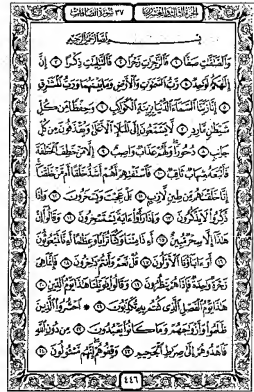 الجزء الثالث والعشرون ٣٧ سورة الصافات
بِسْمِ اللَّهِ الرَّحْمَٰنِ الرَّحِيمِ
وَالصَّافَّاتِ صَفًّا ١ فَالزَّاجِرَاتِ زَجْرًا ٢ فَالتَّالِيَاتِ ذِكْرًا ٣ إِنَّ
إِلَٰهَكُمْ لَوَاحِدٌ ٤ رَبُّ السَّمَٰوَاتِ وَالْأَرْضِ وَمَا بَيْنَهُمَا وَرَبُّ الْمَشَارِقِ ٥
إِنَّا زَيَّنَّا السَّمَاءَ الدُّنْيَا بِزِينَةٍ الْكَوَاكِبِ ٦ وَحِفْظًا مِّن كُلِّ
شَيْطَٰنٍ مَّارِدٍ ٧ لَّا يَسَّمَّعُونَ إِلَى الْمَلَإِ الْأَعْلَىٰ وَيُقْذَفُونَ مِن كُلِّ
جَانِبٍ ٨ دُحُورًا وَلَهُمْ عَذَابٌ وَاصِبٌ ٩ إِلَّا مَنْ خَطِفَ الْخَطْفَةَ
فَأَتْبَعَهُ شِهَابٌ ثَاقِبٌ ١٠ فَاسْتَفْتِهِمْ أَهُمْ أَشَدُّ خَلْقًا أَم مَّنْ خَلَقْنَا
إِنَّا خَلَقْنَاهُم مِّن طِينٍ لَّازِبٍ ١١ بَلْ عَجِبْتَ وَيَسْخَرُونَ ١٢ وَإِذَا
ذُكِّرُوا لَا يَذْكُرُونَ ١٣ وَإِذَا رَأَوْا ءَايَةً يَسْتَسْخِرُونَ ١٤ وَقَالُوا إِنْ
هَٰذَا إِلَّا سِحْرٌ مُّبِينٌ ١٥ أَءِذَا مِتْنَا وَكُنَّا تُرَابًا وَعِظَامًا أَءِنَّا لَمَبْعُوثُونَ ١٦
أَوَءَابَاؤُنَا الْأَوَّلُونَ ١٧ قُلْ نَعَمْ وَأَنتُمْ دَاخِرُونَ ١٨ فَإِنَّمَا هِيَ
زَجْرَةٌ وَاحِدَةٌ فَإِذَا هُمْ يَنظُرُونَ ١٩ وَقَالُوا يَاوَيْلَنَا هَٰذَا يَوْمُ الدِّينِ ٢٠
هَٰذَا يَوْمُ الْفَصْلِ الَّذِي كُنتُم بِهِ تُكَذِّبُونَ ٢١ احْشُرُوا الَّذِينَ
ظَلَمُوا وَأَزْوَاجَهُمْ وَمَا كَانُوا يَعْبُدُونَ ٢٢ مِن دُونِ اللَّهِ
فَاهْدُوهُمْ إِلَىٰ صِرَاطِ الْجَحِيمِ ٢٣ وَقِفُوهُمْ إِنَّهُم مَّسْئُولُونَ ٢٤
٤٤٦